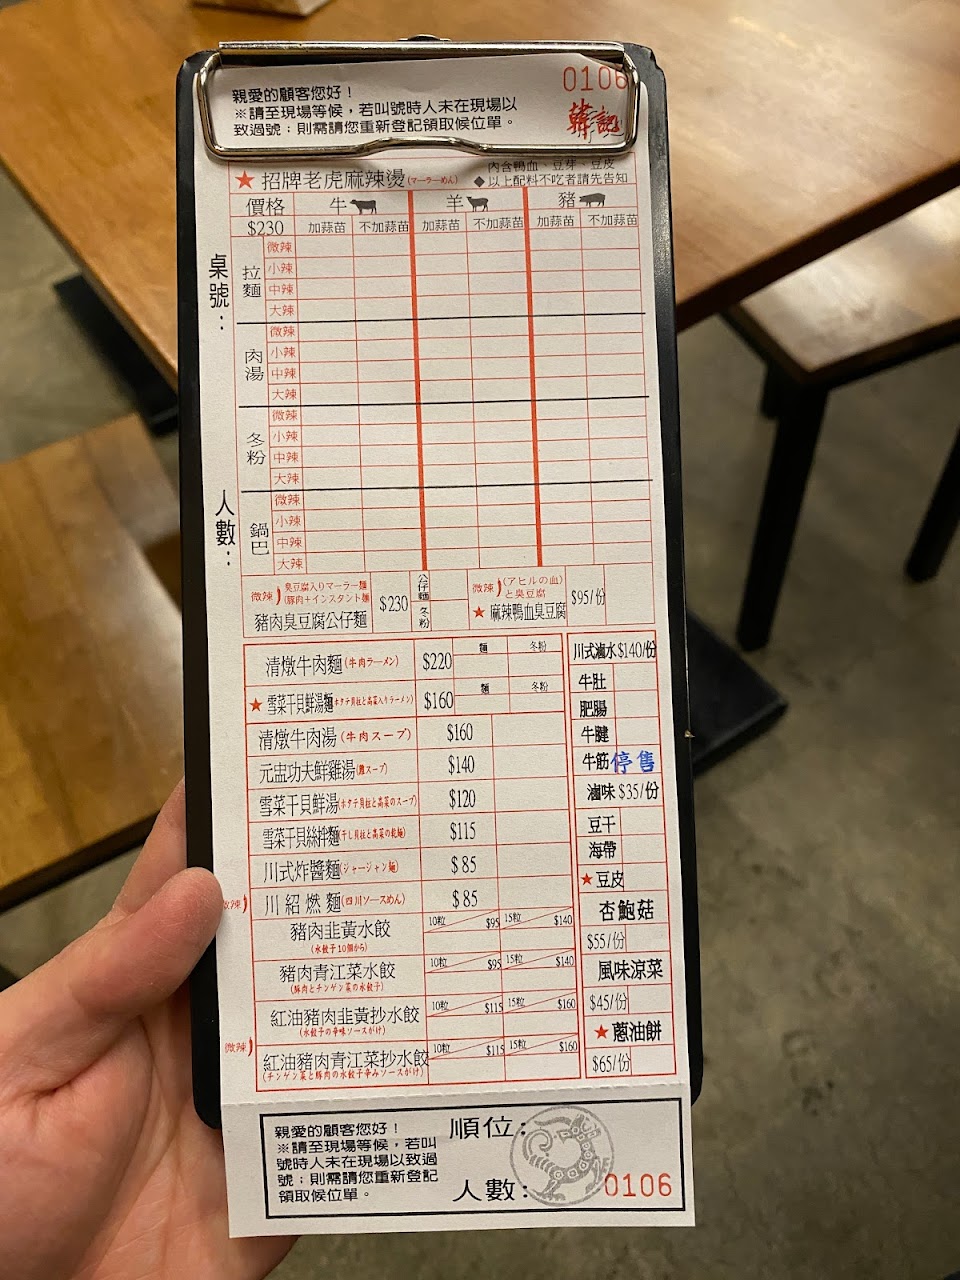 親愛的顧客您好！
※請至現場等候，若叫號時人未在現場以
致過號；則需請您重新登記領取候位單。
0106
韓記
★ 招牌老虎麻辣燙(マーラーめん)
內含鴨血、豆芽、豆皮
◆以上配料不吃者請先告知
價格 牛 羊 豬
$230 加蒜苗 不加蒜苗 加蒜苗 不加蒜苗 加蒜苗 不加蒜苗
桌號：
拉麵
微辣
小辣
中辣
大辣
肉湯
微辣
小辣
中辣
大辣
冬粉
微辣
小辣
中辣
大辣
人數：
鍋巴
微辣
小辣
中辣
大辣
微辣) 臭豆腐入りマーラー麵
(豚肉+インスタント麵
豬肉臭豆腐公仔麵
$230
公仔麵
冬粉
微辣) (アヒルの血)
と臭豆腐
★ 麻辣鴨血臭豆腐
$95/份
清燉牛肉麵(牛肉ラーメン) $220 麵 冬粉
★ 雪菜干貝鮮湯麵(ホタテ貝柱と高菜入りラーメン) $160 麵 冬粉
清燉牛肉湯(牛肉スープ) $160
元盅功夫鮮雞湯(鷄スープ) $140
雪菜干貝鮮湯(ホタテ貝柱と高菜のスープ) $120
雪菜干貝絲拌麵(干し貝柱と高菜の乾麵) $115
川式炸醬麵(ジャージャン麵) $85
微辣) 川紹燃麵(四川ソースめん) $85
豬肉韭黃水餃
(水餃子10個から)
10粒 $95 15粒 $140
豬肉青江菜水餃
(豚肉とチンゲン菜の水餃子)
10粒 $95 15粒 $140
紅油豬肉韭黃抄水餃
(水餃子の辛味ソースがけ)
10粒 $115 15粒 $160
微辣)
紅油豬肉青江菜抄水餃
(チンゲン菜と豚肉の水餃子辛みソースがけ)
10粒 $115 15粒 $160
川式滷水$140/份
牛肚
肥腸
牛腱
牛筋 停售
滷味$35/份
豆干
海帶
★豆皮
杏鮑菇
$55/份
風味涼菜
$45/份
★蔥油餅
$65/份
親愛的顧客您好！
※請至現場等候，若叫
號時人未在現場以致過
號；則需請您重新登記
領取候位單。
順位：
人數：
0106